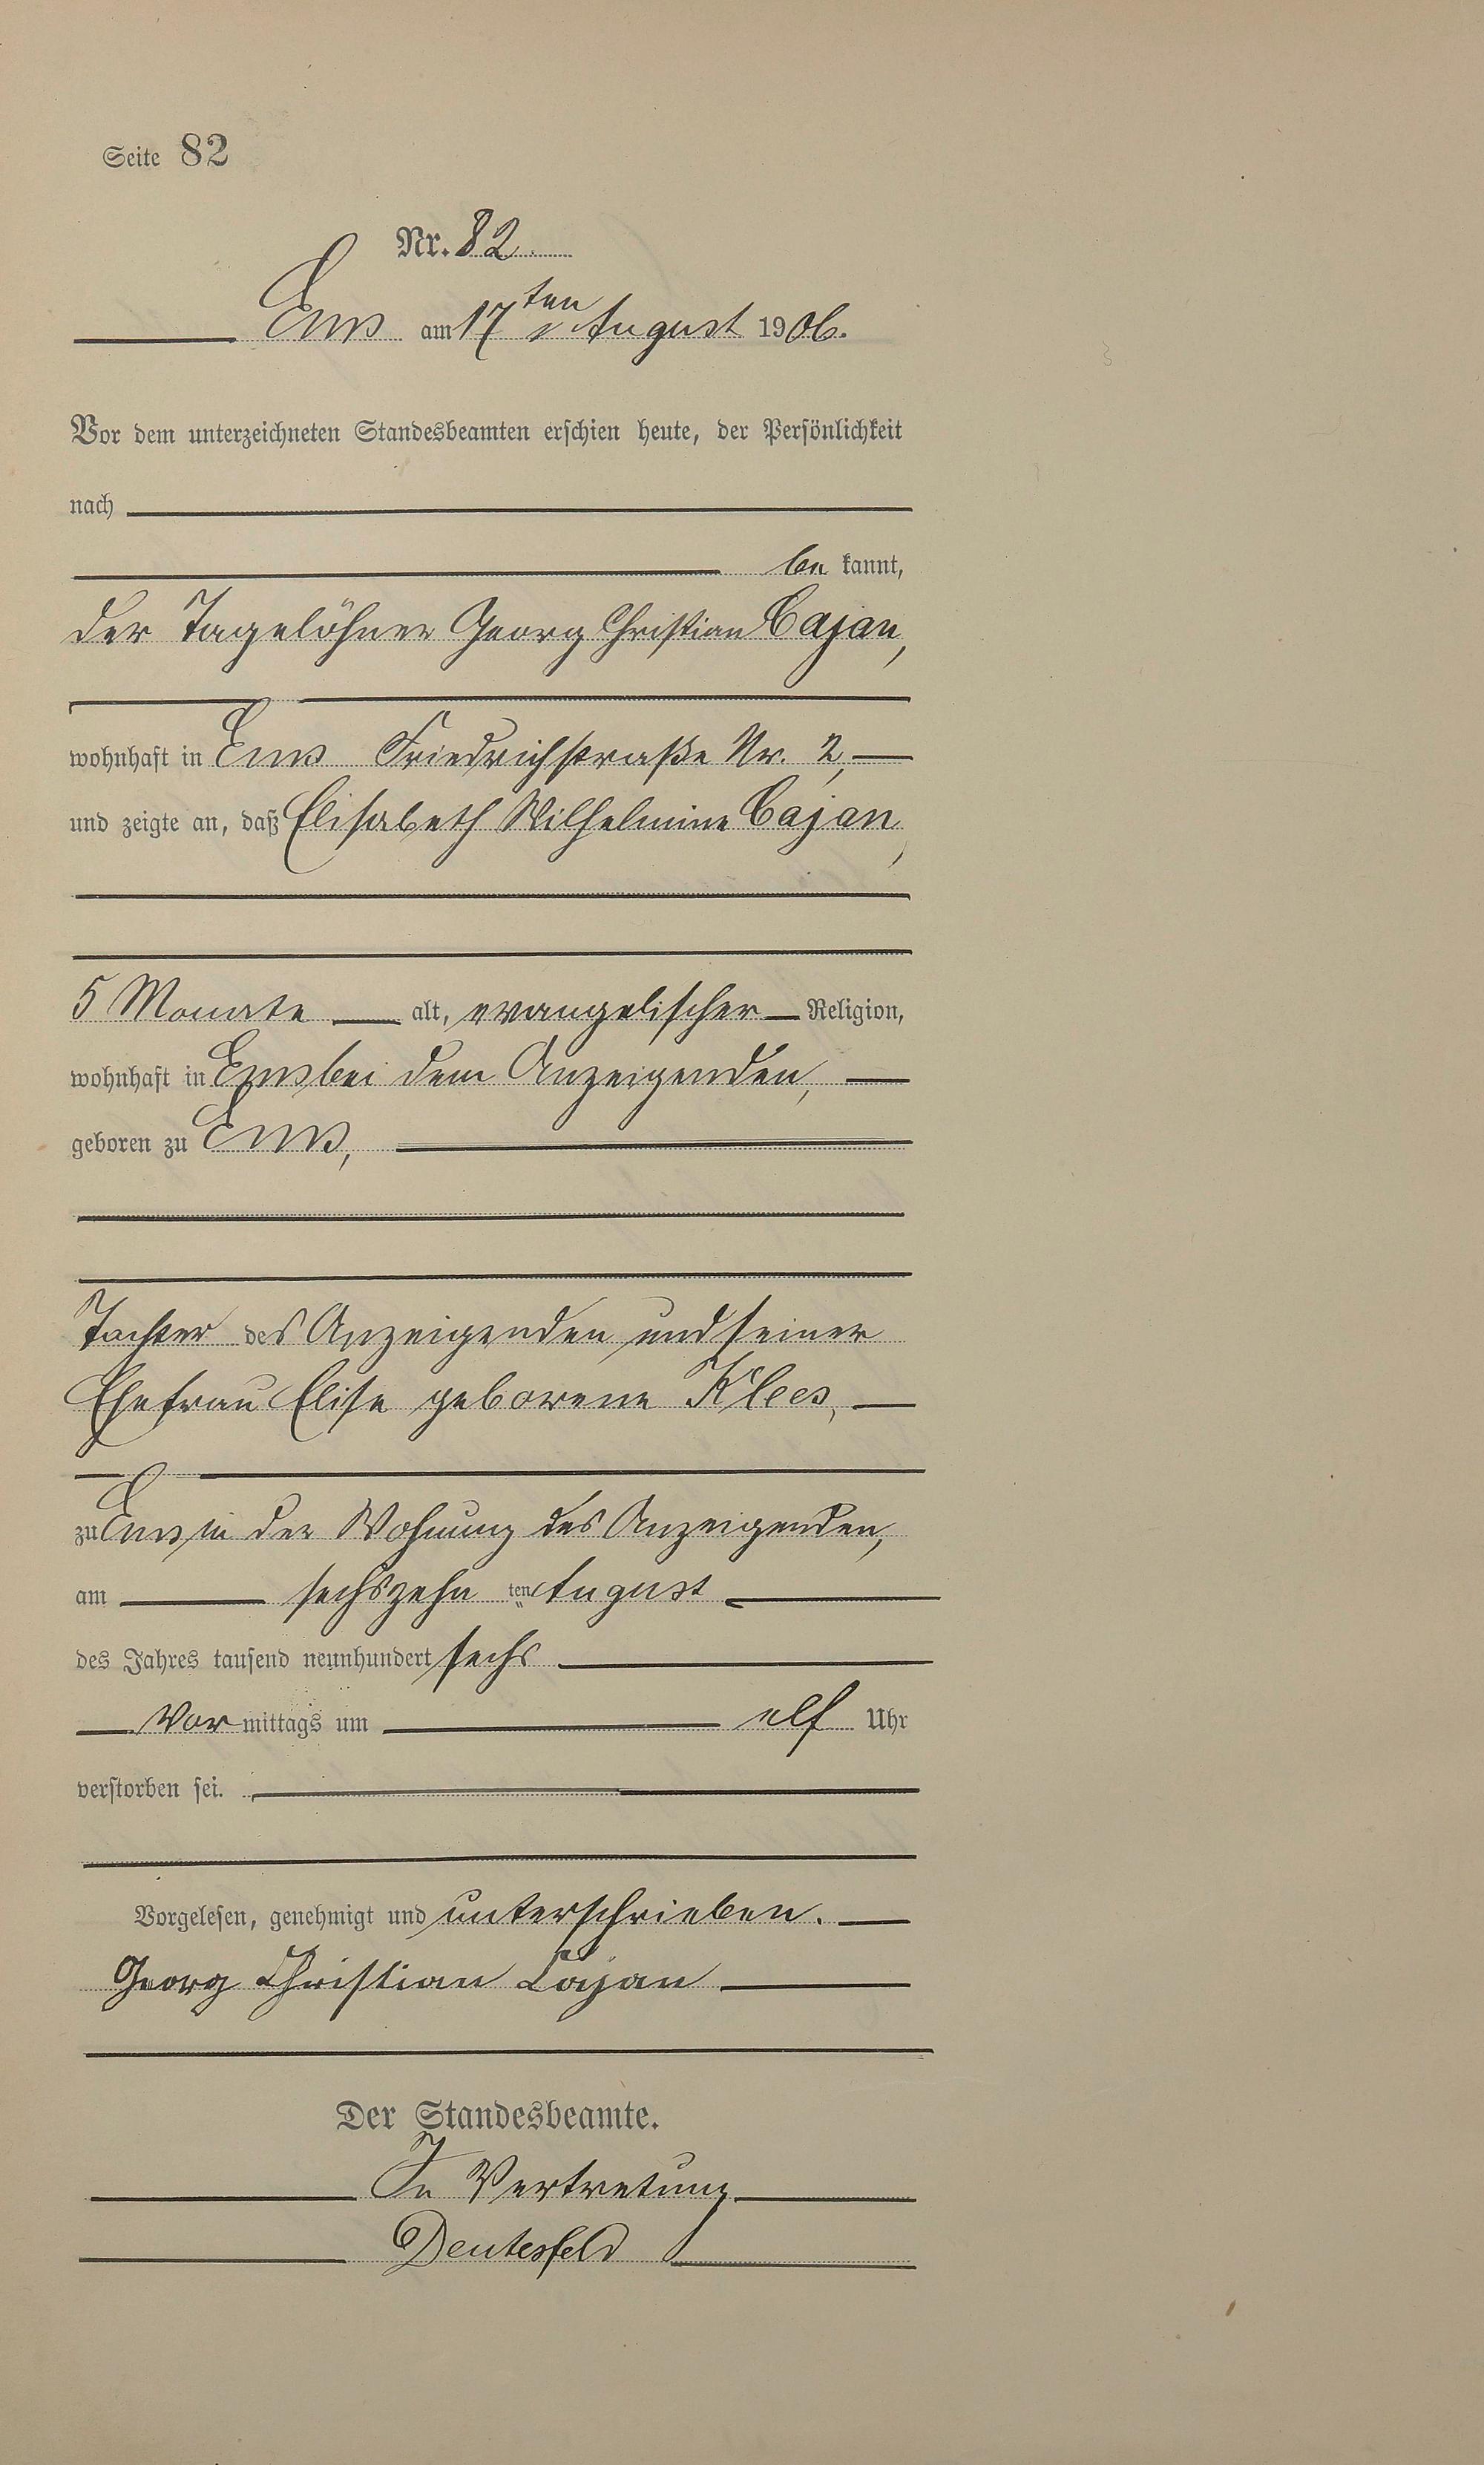 Seite 82
Nr. 82
Ems am 17ten August 1906.
Vor dem unterzeichneten Standesbeamten erschien heute, der Persönlichkeit
nach
be kannt,
der Tagelöhner Georg Christian Cajan,
wohnhaft in Ems Friedrichstraße Nr. 2,
und zeigte an, daß Elisabeth Wilhelmine Cajan,
5 Monate alt, evangelischer Religion,
wohnhaft in Ems bei dem Anzeigenden,
geboren zu Ems,
Tochter des Anzeigenden und seiner
Ehefrau Elise geborene Klees,
zu Ems in der Wohnung des Anzeigenden,
am sechszehn ten August
des Jahres tausend neunhundert sechs
Vor mittags um elf Uhr
verstorben sei.
Vorgelesen, genehmigt und unterschrieben.
Georg Christian Cajan
Der Standesbeamte.
In Vertretung
Deutesfeld